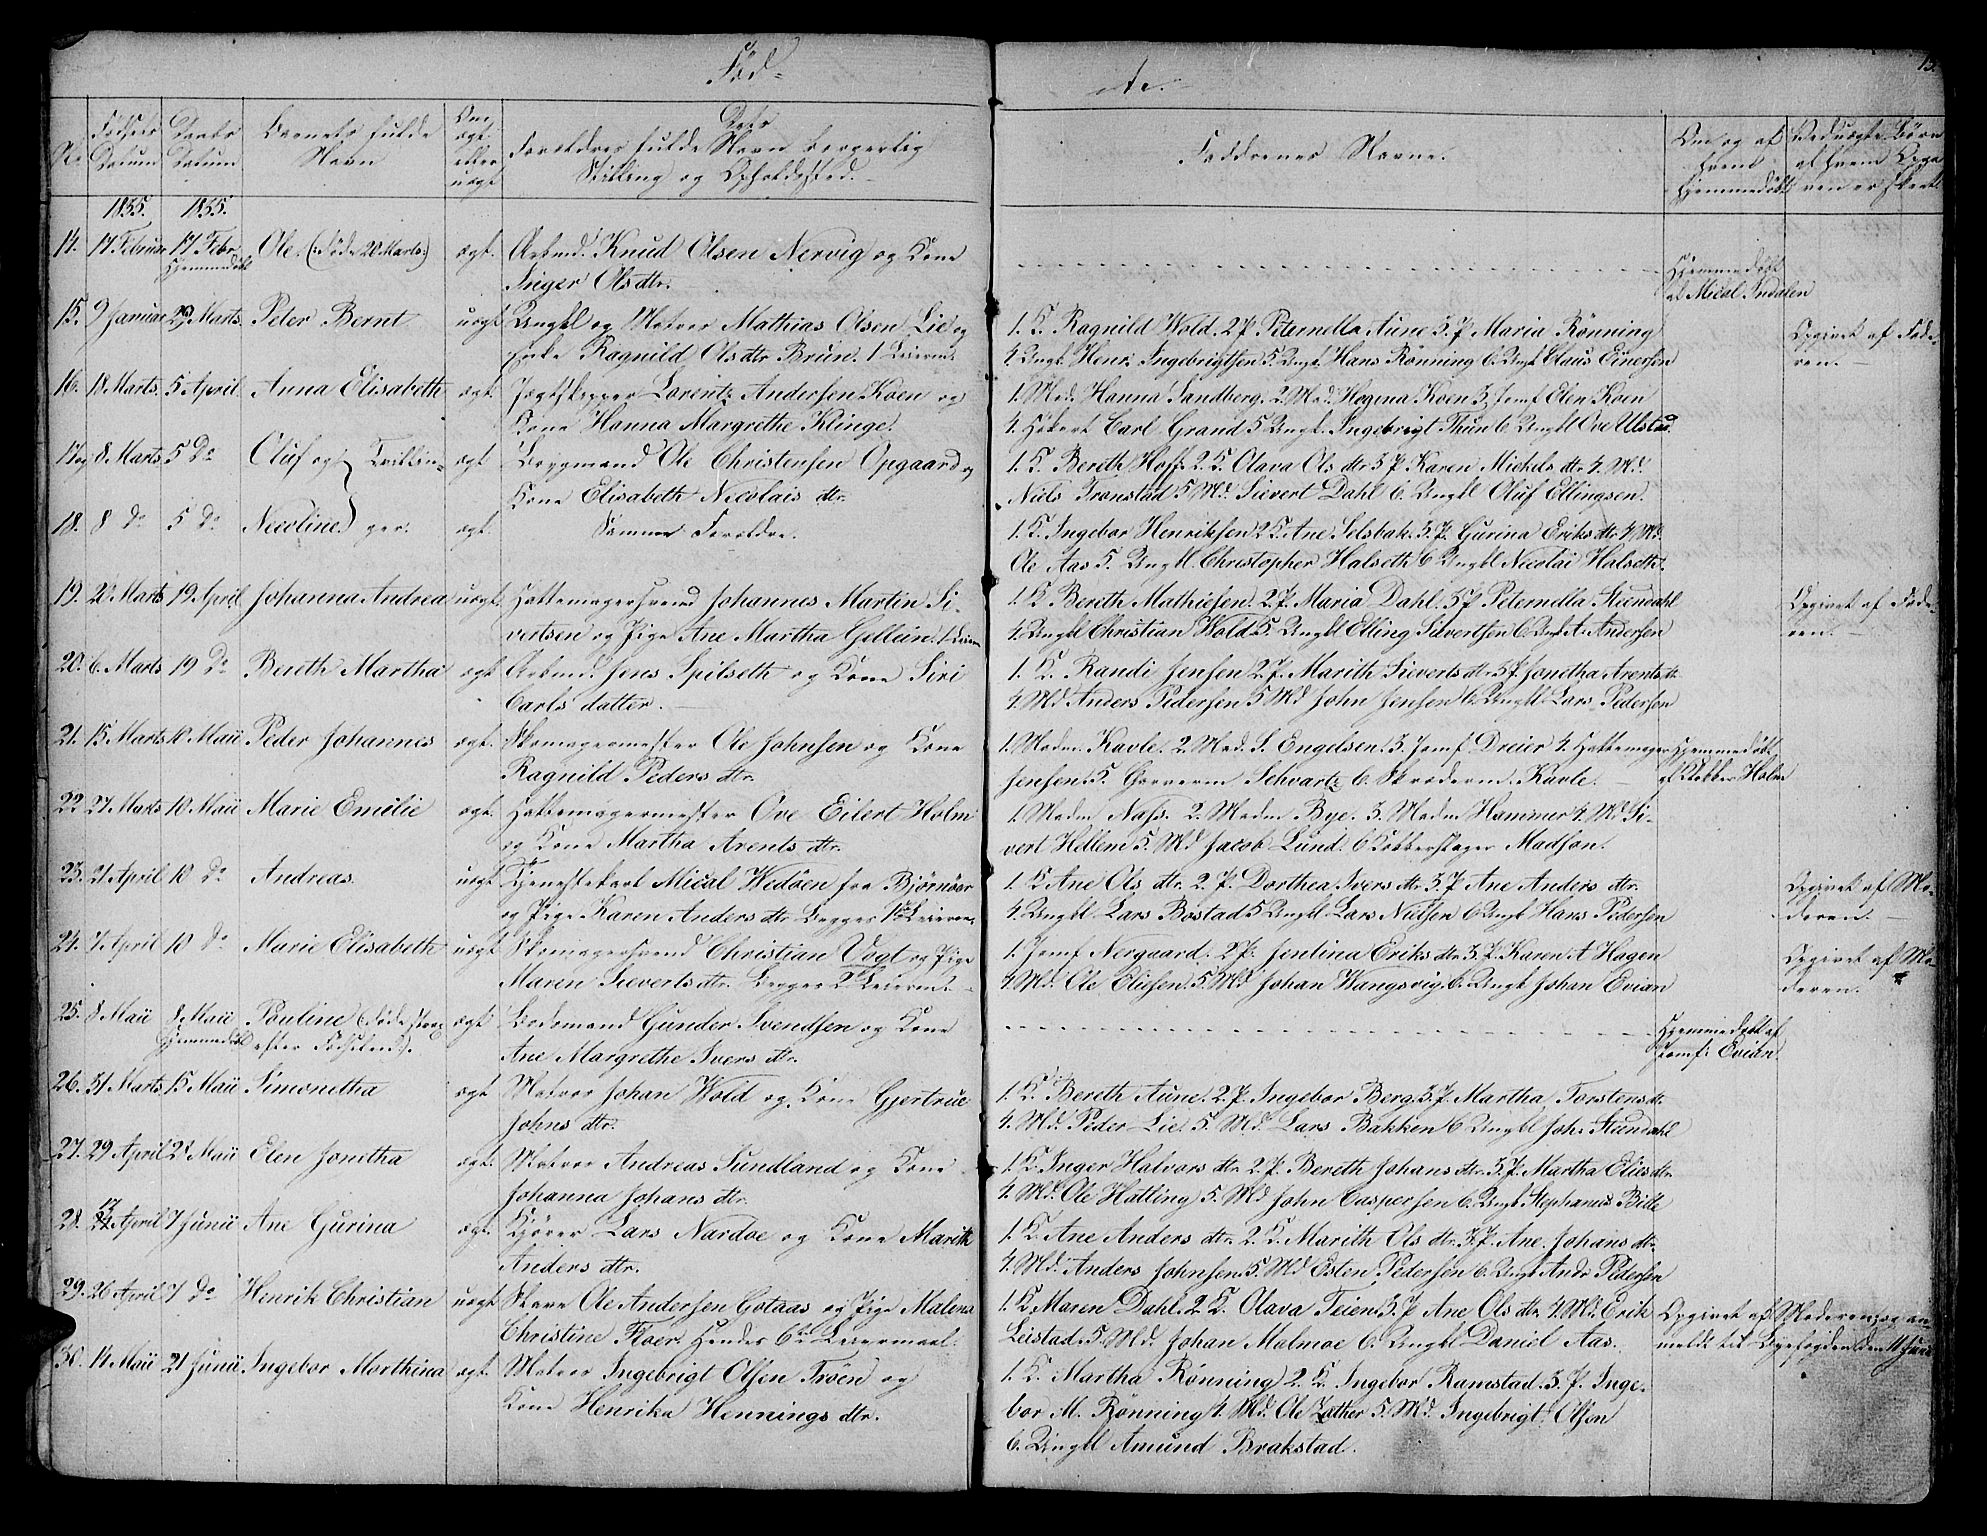 Fød-
te.
15.
No
Fødsels Datum
Daabs Datum
Barnets fulde Navn
Om ægt eller uægt
Dets Forældres fulde Navn borgerlig Stilling og Opholdssted.
Faddrenes Navne.
Om og af hvem hjemmedøbt
Ved uægte Børn af hvem Opgaven er skeet
1835. 1835.
14. 17 Februar 17 Febr Hjemmedøbt Ole (: død 20 Marts:) ægt. Arbmd. Knud Olsen Nervig og Kone
Inger Olsdtr.
Hjemmedøbt af Micol Indalen
15. 9 Januar 29 Marts Peter Bernt uægt Ungkl og Matros Mathias Olsen Lie og
Enke Ragnild Olsdtr Brun. 1 Leierm.
1. K. Ragnild Wold. 2 P. Peternella Aune 3. P Maria Rönning
4 Ungk. Henr. Ingebrigtsen 5 Ungk. Hans Rönning 6 Ungk Claus Einersen
Opgivet af Faderen.
16. 18 Marts. 5 April Anna Elisabeth ægt. Jægtskipper Lorentz Andersen Koen og
Kone Hanna Margrethe Klinge.
1. Mad. Hanna Sandberg. 2. Mad. Hogina Koen 3 Jomf Elen Koen
4. Høker Carl Grand 5 Ungk. Ingebrigt Thun 6 Ungkl Ove Ulstad.
17 og 8 Marts 5 Do Oluf og } Tvillin- ægt Brygmand Ole Christensen Opgaard og
Kone Elisabeth Nicolais dtr.
1. K. Bereth Hoff. 2. K. Olava Ols dtr 3. P Karen Michels dtr. 4. Md.
Niels Tronstad 5 Md. Sievert Dahl 6. Ungkl Oluf Ellingsen.
18. 8 do 5 Do Nicoline } ger. ægt. Samme Forældre.
1. K. Ingebor Henriksen 2 K. Ane Selsbak. 3. P. Gurina Eriks dtr 4. Md.
Ole Aas 5. Ungkl. Christopher Halseth 6 Ungkl Nicolai Halseth.
19. 20 Marts 19 April Johanna Andrea uægt. Hattemagersvend Johannes Martin Si-
vertsen og Pige Ane Martha Gellein. 1 Leierm
1. K Bereth Mathiesen. 2. P. Maria Dahl. 3 P Peternella Stundahl
4. Ungkl Christian Wold. 5. Ungkl Elling Sievertsen 6 Ungk A. Andersen
Opgivet af Faderen.
20. 6. Marts 19 Do Bereth Martha ægt Arbmd. Jens Spilseth og Kone Siri
Carls datter.
1. K. Randi Jensen 2 P. Marith Sieverts dtr. 3 P Jonetha Arents dtr
4. Md Anders Pedersen 5 Md John Jensen 6. Ungkl Lars Pedersen
21. 15 Marts 10 Maii Peder Johannes ægt. Skomagermester Ole Johnsen og Kone
Ragnild Peders dtr.
1. Madm. Kavle. 2. Mad. S. Engelsen. 3. Jomf. Dreier 4. Hattemager
Jensen. 5. Garverm Schvartz 6. Skræderm. Kavle.
Hjemmedøbt af Klokker Holm
22. 27 Marts 10 Maii Marie Emilie ægt. Hattemagermester Ove Eilert Holm
og Kone Martha Arents dtr.
1. Madm Nass. 2. Madm Bye. 3. Madm Hammer 4. Md Si-
vert Hellem 5. Md Jacob Lund. 6 Kobberslager Madson.
23. 21 April 10 do Andreas. uægt Tjenestekarl Micol Wedöen fra Björnöer
og Pige Karen Anders dtr Begges 1ste Leierm.
1. K Ane Ols dtr. 2. P. Dorthea Ivers dtr. 3. P Ane Anders dtr.
4 Ungkl Lars Bostad 5 Ungkl. Lars Nielsen 6 Ungk Hans Pedersen
Opgivet af Moderen.
24. 7 April 10 do Marie Elisabeth uægt Skomagersvend Christian Vogt og Pige
Maren Sieverts dtr. Begges 2det Leierm.
1. Jomf Nergaard. 2 P. Jentina Eriks dtr 3. P. Karen A Hagen
4 Md. Ole Eliesen. 5. Md Johan Wangsvig. 6. Ungk Johan Evian
Opgivet af Moderen.
25. 8 Maii 8 Maii Hjemmedøbt Pouline (: døde strax efter Fødselen:). ægt Bødemand Gunder Svendsen og Kone
Ane Margrethe Ivers dtr.
Hjemmedøbt af Jomf: Evian
26. 31 Marts 15 Maii Simonetha ægt Matros Johan Wold og Kone Gjertrue
Johns dtr.
1. K. Bereth Aune. 2. P. Ingebor Berg. 3. P. Martha Torstens dtr
4. Md. Peder Lie. 5. Md. Lars Bakken 6 Ungkl Joh. Stundahl
27. 29 April 28 Maii Elen Jonetha ægt. Matros Andreas Sundland og Kone
Johanna Johans dtr.
1. K Inger Halvors dtr. 2. P. Bereth Johans dtr. 3. P. Martha Elies dtr.
4. Md. Ole Hatling 5. Md John Caspersen 6. Ungk Stephanus Bitte
28. 17 April 7 Junii Ane Gurina ægt. Kjører Lars Nardoe og Kone Marith
Anders dtr.
1. K. Ane Anders dtr. 2. K. Marith Ols dtr. 3. P. Ane Johans dtr.
4. Md. Anders Johnsen. 5. Md Esten Pedersen 6. Ungk Andr Pedersen
29. 26 April 7 do Henrik Christian uægt Slave Ole Andersen Gotaas og Pige Malena
Christine Floer. Hendes 6te Leiermaal.
1. K Maren Dahl. 2. K. Olava Teien. 3. P Ane Ols dtr 4. Md. Erik
Leistad. 5. Md. Johan Malmoe 6. Ungkl Daniel Aas.
Opgivet af Moderen, og an-
meldt til Byefogden den 11 Juni
30. 14 Maii 21 Junii Ingebor Marthina ægt. Matros Ingebrigt Olsen Tröen og
Kone Henrika Hennings dtr.
1. K. Martha Rönning 2. K. Ingebor Ramstad. 3. P. Inge-
bor M. Rönning 4. Md. Ole Zather 5. Md. Ingebrigt Olsen
6. Ungkl Amund Brakstad.